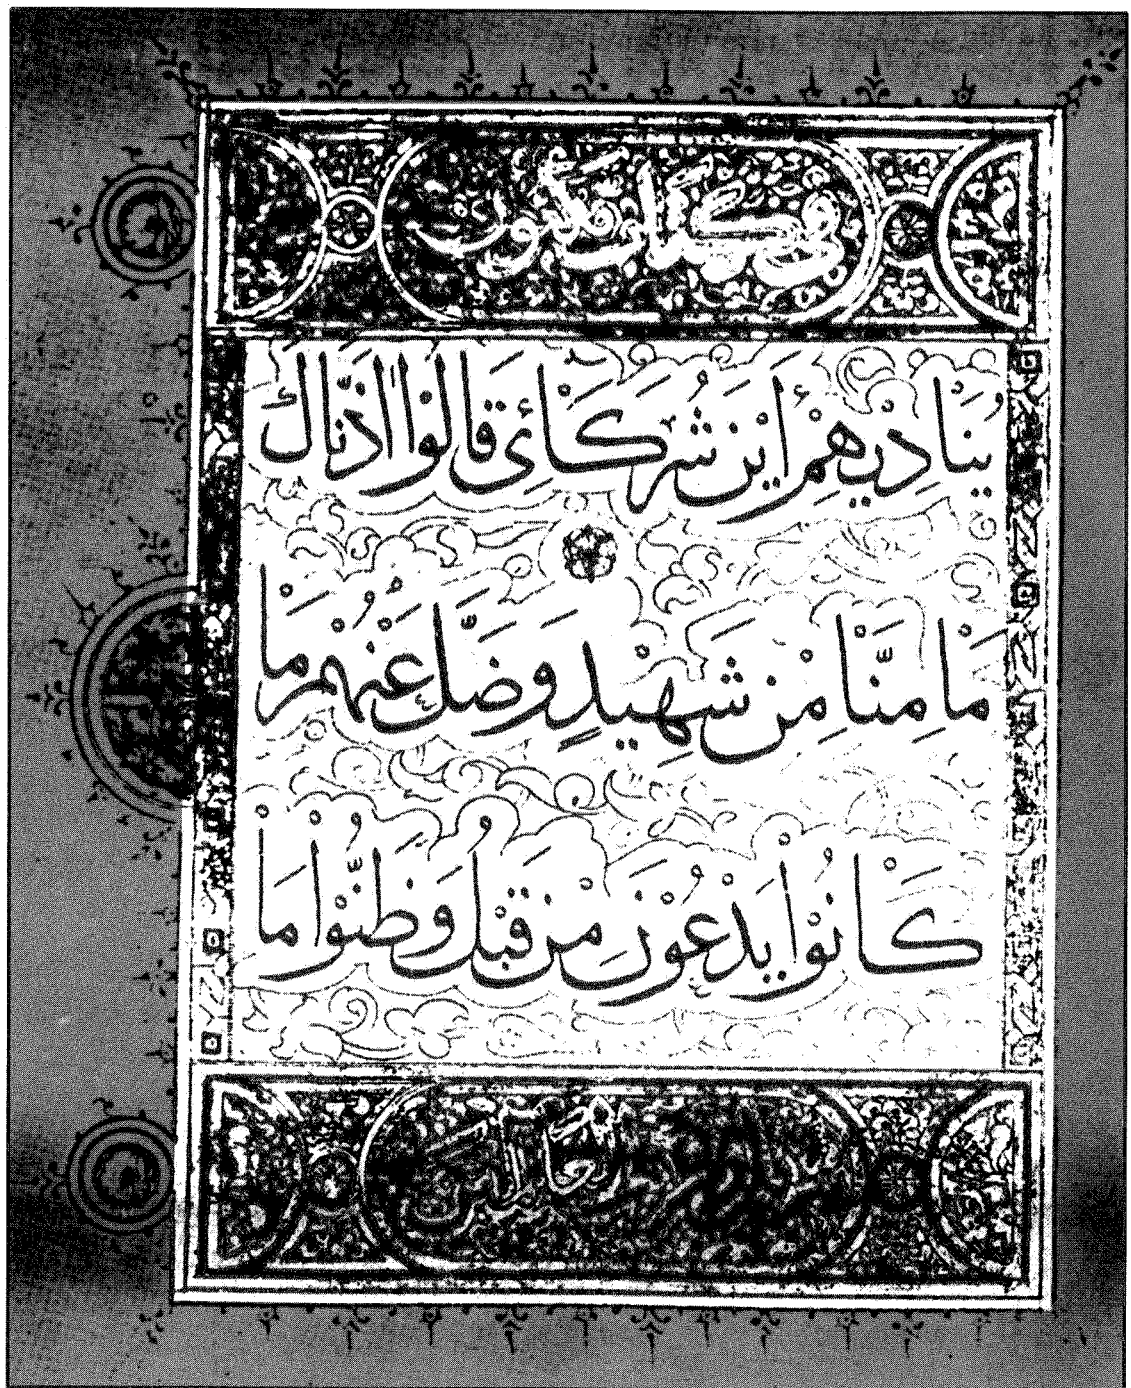 في كتاب مكنون
يُنَادِيهِمْ أَيْنَ شُرَكَائِي قَالُوا اذَنَّاكَ
مَا مِنَّا مِنْ شَهِيدٍ وَضَلَّ عَنْهُمْ مَا
كَانُوا يَدْعُونَ مِنْ قَبْلُ وَظَنُّوا مَا
العالمين